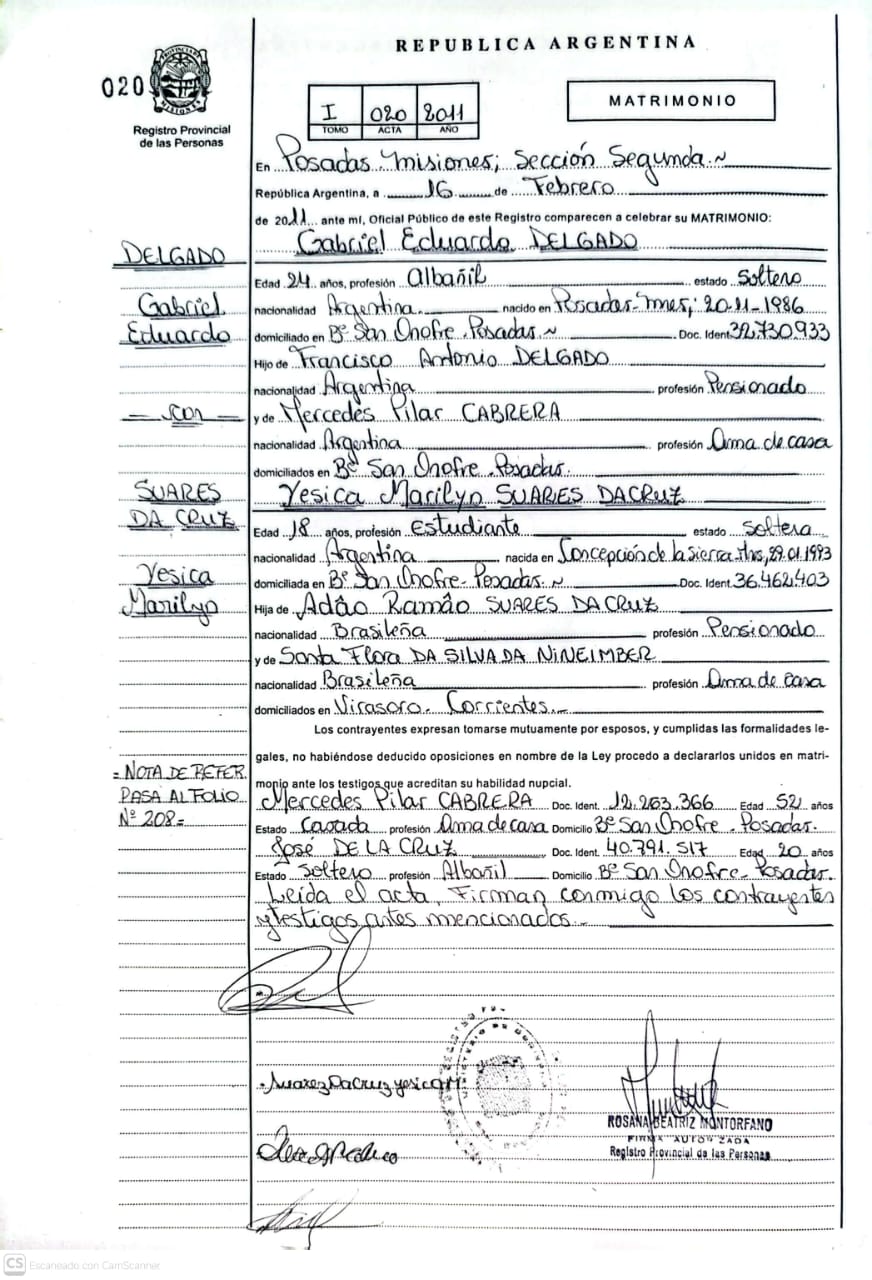 REPUBLICA ARGENTINA
020
PROVINCIA DE MISIONES
Registro Provincial
de las Personas
I 020 2011
TOMO ACTA AÑO
MATRIMONIO
En Posadas Misiones; Sección Segunda
República Argentina, a 16 de Febrero
de 2011 ante mí, Oficial Público de este Registro comparecen a celebrar su MATRIMONIO:
Gabriel Eduardo DELGADO
DELGADO
Gabriel
Eduardo
Edad 24 años, profesión Albañil estado Soltero
nacionalidad Argentina nacido en Posadas-Mnes; 20-11-1986
domiciliado en Bº San Onofre Posadas Doc. Ident. 32.730.933
Hijo de Francisco Antonio DELGADO
nacionalidad Argentina profesión Pensionado
con
y de Mercedes Pilar CABRERA
nacionalidad Argentina profesión Ama de casa
domiciliados en Bº San Onofre Posadas.
SUARES
DA CRUZ
Yesica
Marilyn
Yesica Marilyn SUARES DACRUZ
Edad 18 años, profesión estudiante estado soltera
nacionalidad Argentina nacida en Concepción de la Sierra Mns, 29.01.1993
domiciliada en Bº San Onofre-Posadas. Doc. Ident. 36.462.403
Hija de Adâo Ramâo SUARES DACRUZ
nacionalidad Brasileña profesión Pensionado
y de Santa Flora DA SILVA DA NINEIMBER
nacionalidad Brasileña profesión Ama de casa
domiciliados en Virasoro- Corrientes.
Los contrayentes expresan tomarse mutuamente por esposos, y cumplidas las formalidades le-
gales, no habiéndose deducido oposiciones en nombre de la Ley procedo a declararlos unidos en matri-
monio ante los testigos que acreditan su habilidad nupcial.
= NOTA DE REFER.
PASA AL FOLIO
Nº 208=
Mercedes Pilar CABRERA Doc. Ident. 12.263.366 Edad 52 años
Estado Casada profesión Ama de casa Domicilio Bº San Onofre - Posadas.
José DE LA CRUZ Doc. Ident. 40.791.517 Edad 20 años
Estado Soltero profesión Albañil Domicilio Bº San Onofre- Posadas.
Leída el acta, Firman conmigo los contrayentes
y testigos antes mencionados.
Suarez DaCruz yesica M.
ROSANA BEATRIZ MONTORFANO
FIRMA AUTORIZADA
Registro Provincial de las Personas
CS Escaneado con CamScanner